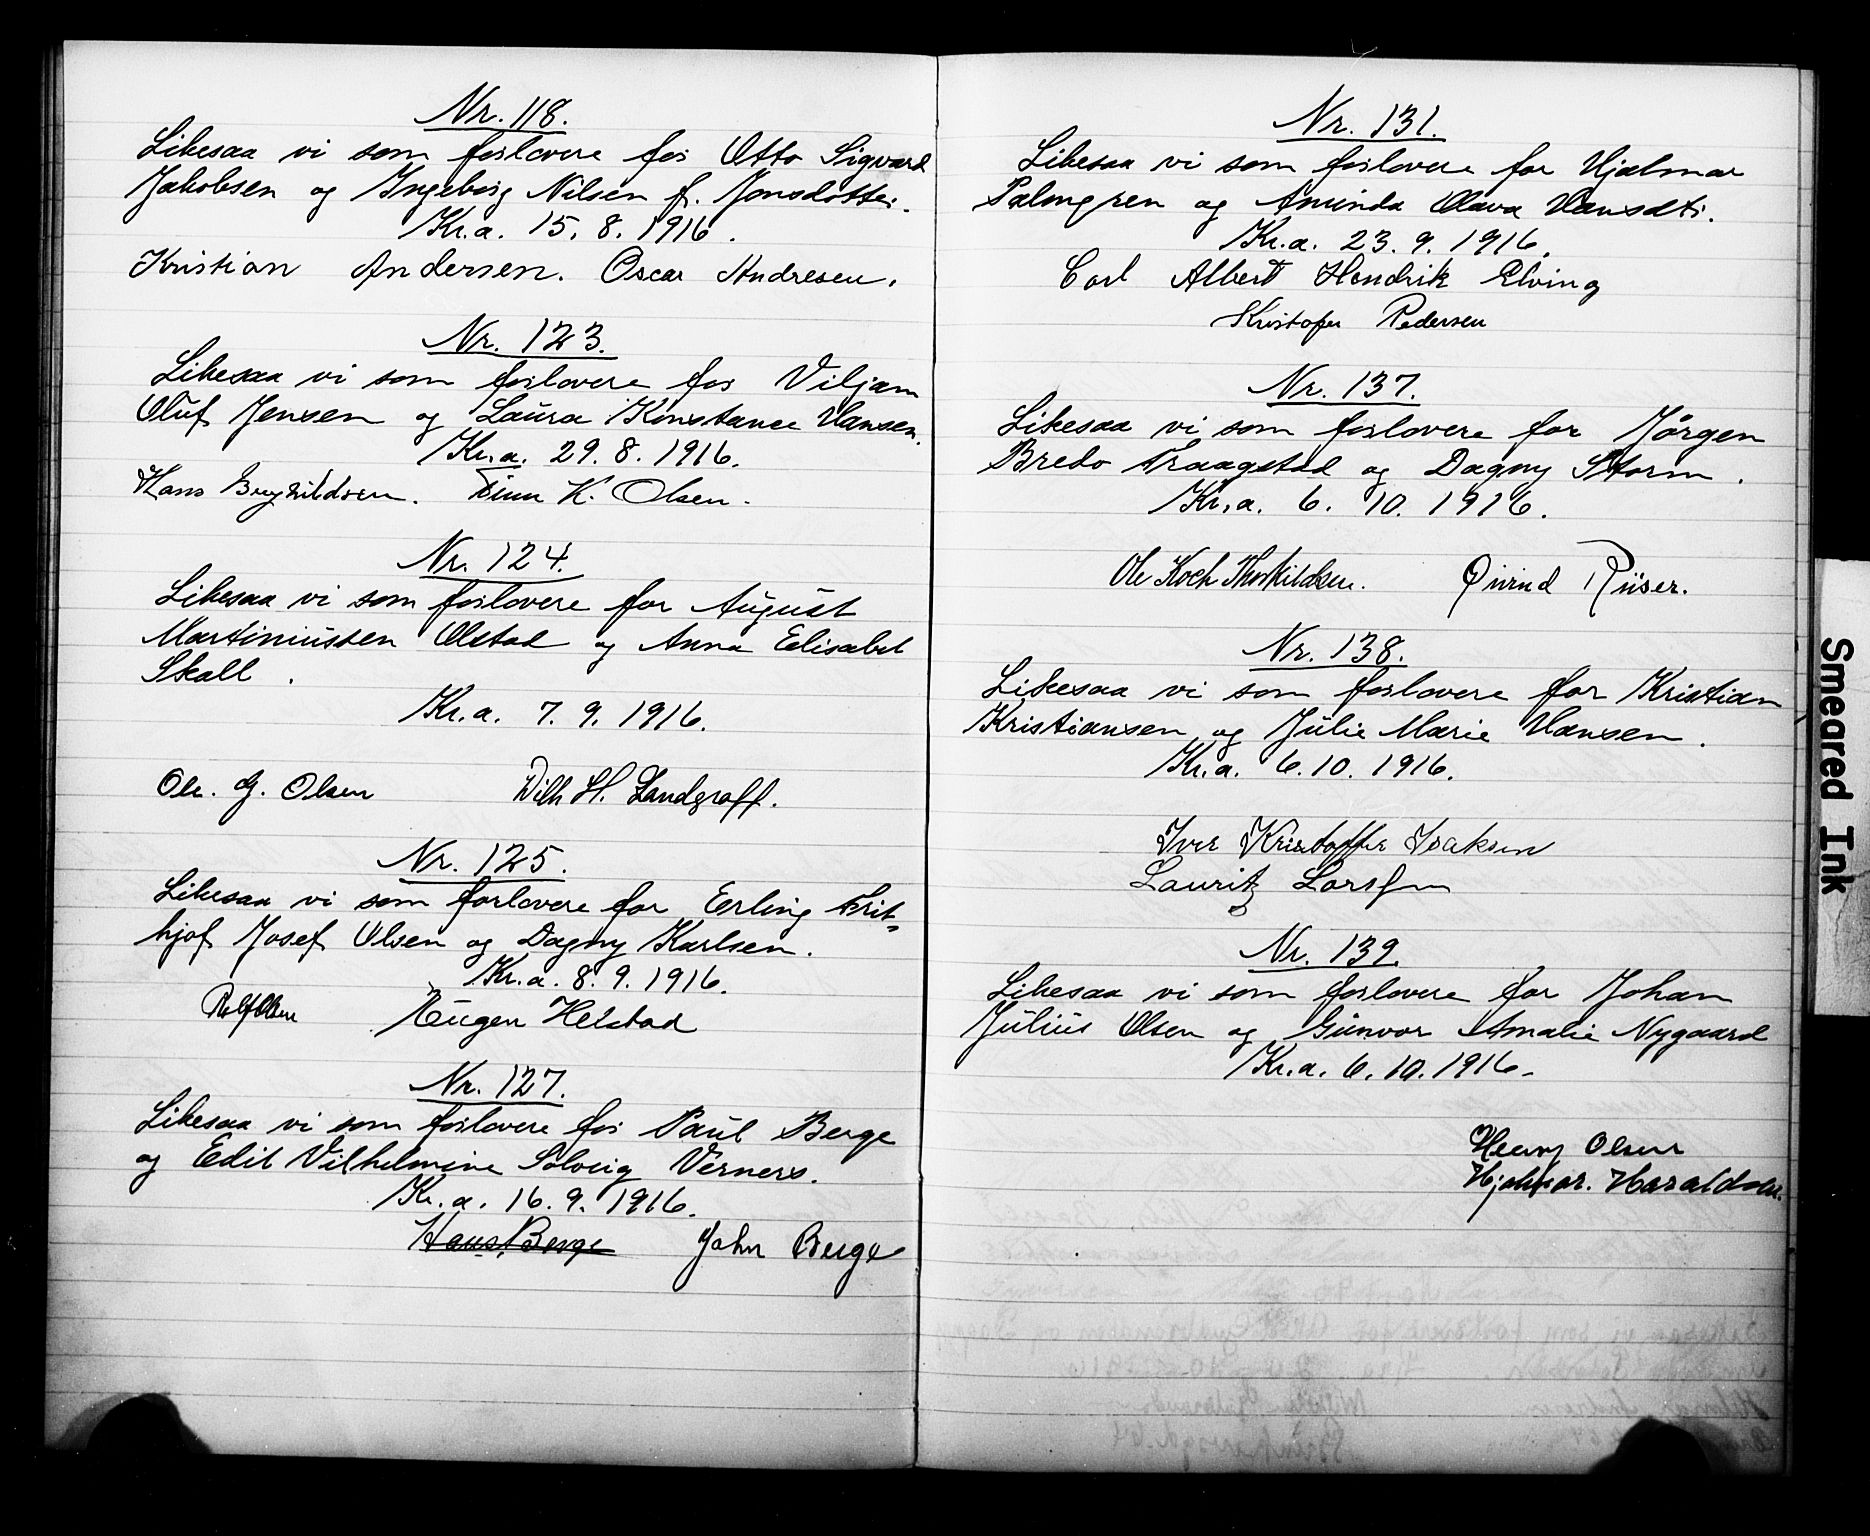 Nr. 118.
Likesaa vi som forlovere for Otto Sigvard
Jakobsen og Ingeborg Nilsen f. Jonsdotter.
Kr.a. 15. 8. 1916.
Kristian Andersen. Oscar Andresen.
Nr. 123.
Likesaa vi som forlovere for Viljam
Oluf Jensen og Laura Konstance Hansen.
Kr.a. 29. 8. 1916.
Hans Finn K. Olsen.
Nr. 124.
Likesaa vi som forlovere for August
Martiniussen Olstad og Anna Elisabet
Skall.
Kr.a. 7. 9. 1916.
Ole. G. Olsen Wilh H. Landgraff.
Nr. 125.
Likesaa vi som forlovere for Erling Frit=
hjof Josef Olsen og Dagny Karlsen.
Kr.a. 8. 9. 1916.
Rolf Olsen Eugen Helstad
Nr. 127.
Likesaa vi som forlovere for Paul Berge
og Edit Vilhelmine Solveig Verners.
Kr.a. 16. 9. 1916.
Hans Berge John Berge
Nr. 131.
Likesaa vi som forlovere for Hjalmar
Palmgren og Aminda Olava Hansdtr.
Kr.a. 23. 9. 1916.
Carl Albert Hendrik Elving
Kristofer Pedersen
Nr. 137.
Likesaa vi som forlovere for Jørgen
Bredo Fraagstad og Dagny Storm.
Kr.a. 6. 10. 1916.
Ole Koch Thorkildsen. Øivind Riiser.
Nr. 138.
Likesaa vi som forlovere for Kristian
Kristiansen og Julie Marie Hansen.
Kr.a. 6. 10. 1916.
Iver Kristoffer Isaksen
Lauritz Larsen
Nr. 139.
Likesaa vi som forlovere for Johan
Julius Olsen og Gunvor Amalie Nygaard
Kr.a. 6. 10. 1916.
Henry Olsen
Hjalmar. Haraldsen.
Smeared Ink